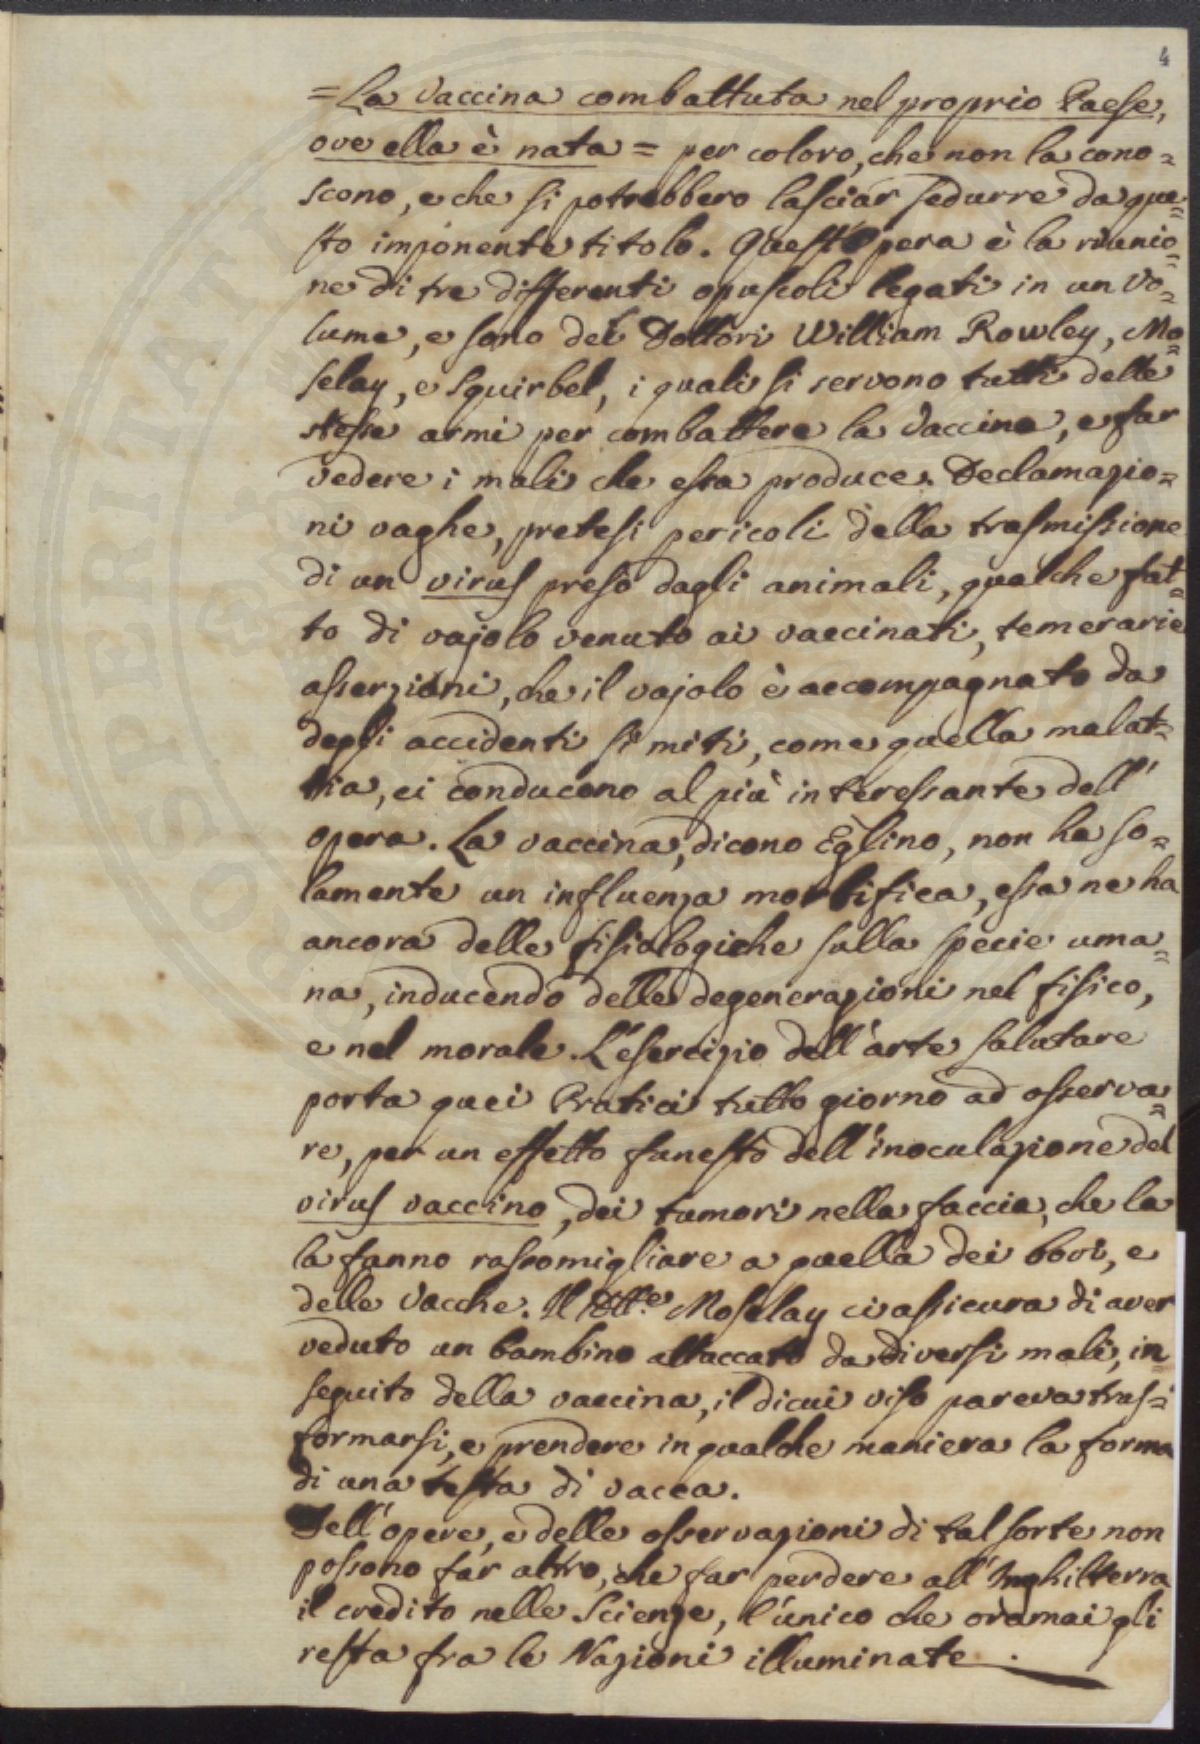 4
= La Vaccina combattuta nel proprio Paese,
ove ella è nata = per coloro, che non la cono=
scono, e che si potrebbero lasciar sedurre da que=
sto imponente titolo. Quest'Opera è la riunio=
ne di tre differenti opuscoli legati in un Vo=
lume, e sono dei Dottori William Rowley, Mo=
selay, e Squirbel, i quali si servono tutti delle
stesse armi per combattere la Vaccina, e far
vedere i mali che essa produce. Declamazio=
ni vaghe, pretesi pericoli della trasmissione
di un virus preso dagli animali, qualche fat=
to di vajolo venuto ai vaccinati, temerarie
asserzioni, che il vajolo è accompagnato da
degli accidenti sì miti, come quella malat=
tia, ci conducono al più interessante dell'
opera. La vaccina, dicono Eglino, non ha so=
lamente un influenza morbifica, essa ne ha
ancora delle fisiologiche sulla specie uma=
na, inducendo delle degenerazioni nel fisico,
e nel morale. L'esercizio dell'arte salutare
porta quei Pratici tutto giorno ad osserva=
re, per un effetto funesto dell'inoculazione del
virus vaccino, dei tumori nella faccia, che la
la fanno rassomigliare a quella dei bovi, e
delle Vacche. Il Dtt.e Moselay ci assicura di aver
veduto un bambino attaccato da diversi mali, in
seguito della vaccina, il dicui viso pareva tras=
formarsi, e prendere in qualche maniera la forma
di una testa di vacca.
Dell'opere, e delle osservazioni di tal sorte non
possono far altro, che far perdere all'Inghilterra
il credito nelle Scienze, l'unico che oramai gli
resta fra le Nazioni illuminate.
PROSPERITATI